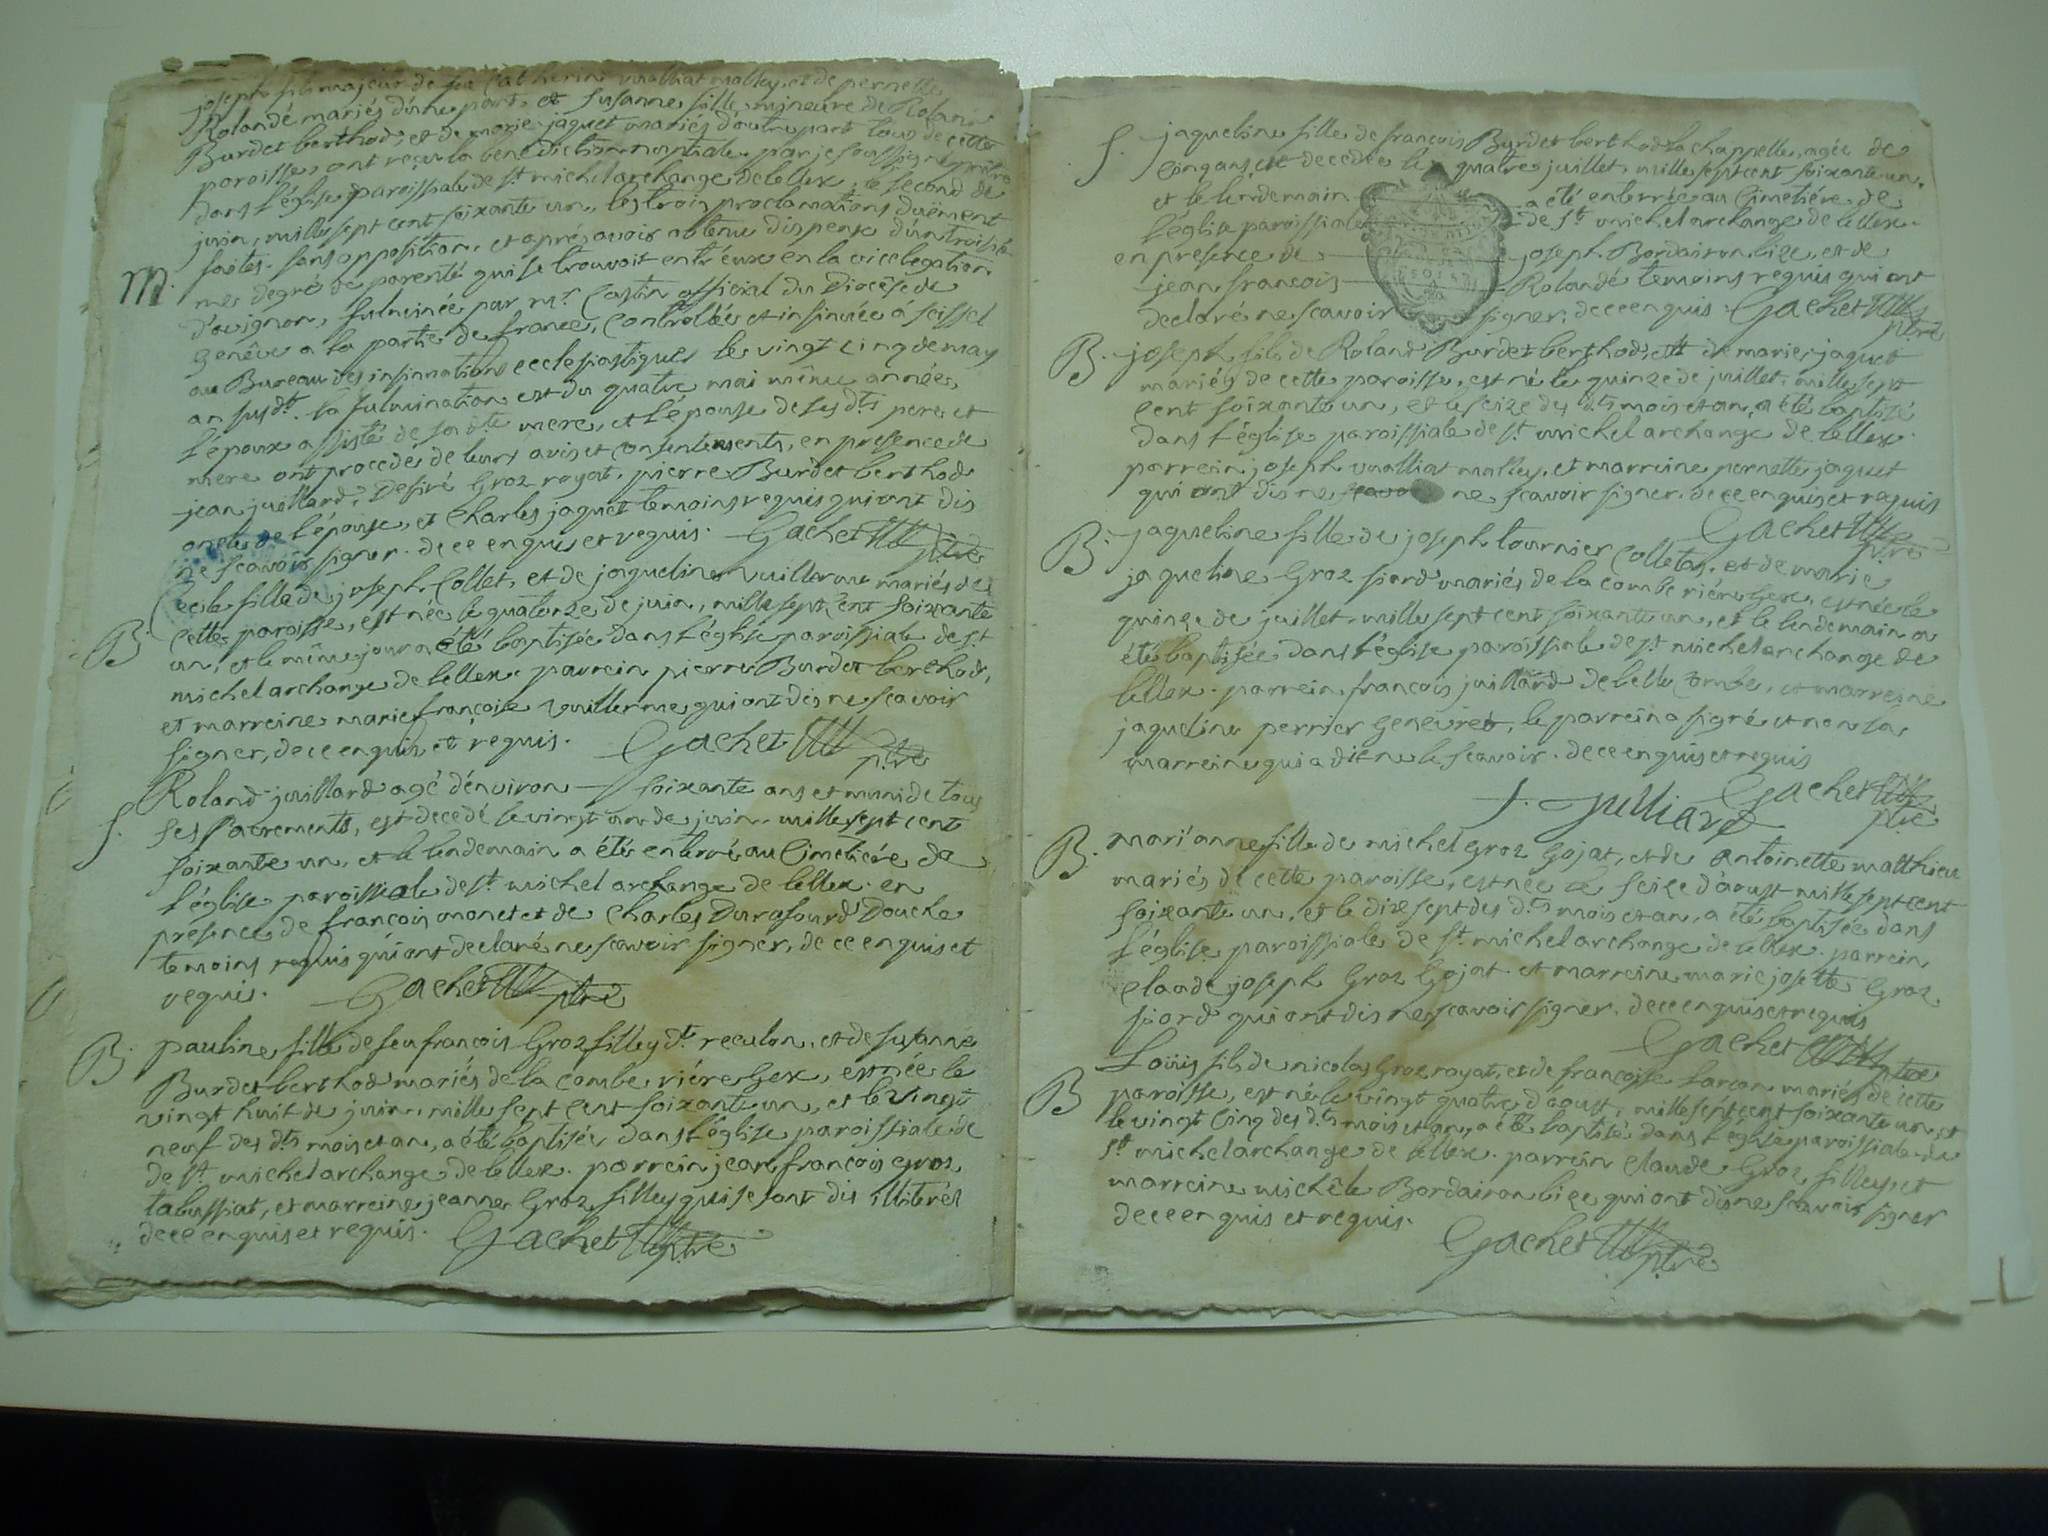 joseph fils majeur de feu Catherin vualliat malley, et de pernette
Rolandé mariés d'une part, et susanne fille mineure de Roland
Burdet berthod, et de marie jaquet mariés d'autre part tous de cette
paroisse, ont reçu la benediction nuptiale par je soussigné prêtre
dans l'église paroissiale de st michel archange de lellex, le second de
juin, mille sept cent soixante un, les trois proclamations duëment
faites, sans opposition, et après avoir obtenu dispense d'un troisié-
M. me degré de parenté qui se trouvoit entr'eux en la vicelegation
d'avignon, fulminée par mr. Castin official du Diocêse de
Genêve a la partie de france, controlée et insinuée à seissel
au Bureau des insinuations ecclesiastiques le vingt cinq de may
an susdt. la fulmination est du quatre mai même année,
l'époux assisté de sa dte mere, et l'épouse de ses dts pere et
mere ont procedés de leurs avis et consentements, en presence de
jean juillard, Desiré Groz royat, pierre Burdet berthod
oncle de l'épouse, et Charles jaquet temoins requis qui ont dis
ne scavoir signer. de ce enquis et requis. Gachet ptre
Cecile fille de joseph Collet, et de jaqueline vuillerme mariés de
cette paroisse, est née le quatorze de juin, mille sept cent soixante
B. un, et le même jour a été baptisée dans l'église paroissiale de st
michel archange de lellex. parrein pierre Burdet berthod,
et marreine marie françoise vuillerme qui ont dis ne scavoir
signer, de ce enquis et requis. Gachet ptre
Roland juillard agé d'environ soixante ans et muni de tous
f. ses sacrements, est decedé le vingt un de juin, mille sept cent
soixante un, et le lendemain a été enterré au Cimetiére de
l'église paroissiale de st michel archange de lellex. en
presence de françois monet et de Charles Durafourd Douche
temoins requis qui ont declaré ne scavoir signer, de ce enquis et
requis. Gachet ptre
B. pauline fille de feu françois Groz filley dt reculon, et de susanne
Burdet berthod mariés de la combe riére Gex, est née le
vingt huit de juin, mille sept cent soixante un, et le vingt
neuf des dts mois et an, a été baptisée dans l'église paroissiale de
de st michel archange de lellex. parrein jean françois Groz
tabussiat, et marreine jeanne Groz filley qui se sont dis illiterés
de ce enquis et requis. Gachet ptre
f. jaqueline fille de françois Burdet berthod la chappelle, agée de
cinq ans, est decedée le quatre juillet, mille sept cent soixante un,
et le lendemain a été enterrée au Cimetiére de
l'église paroissiale de st michel archange de lellex.
en presence de joseph Bordairon bize, et de
jean françois Rolandé temoins requis qui ont
declaré ne scavoir signer, de ce enquis. Gachet ptre
B. joseph fils de Roland Burdet berthod, et de marie jaquet
mariés de cette paroisse, est né le quinze de juillet, mille sept
cent soixante un, et le seize des dts mois et an, a été baptisé
dans l'église paroissiale de st michel archange de lellex.
parrein joseph vualliat malley, et marreine pernette jaquet
qui ont dis ne ne scavoir signer. de ce enquis et requis
Gachet ptre
B. jaqueline fille de joseph tournier Colletas, et de marie
jaqueline Groz siord mariés de la combe riére Gex, est née le
quinze de juillet, mille sept cent soixante un, et le lendemain a
été baptisée dans l'église paroissiale de st michel archange de
lellex. parrein françois juillard de belle combe, et marreine
jaqueline perrier Genevret, le parrein a signé et non la
marreine qui a dit ne le scavoir. de ce enquis et requis
f. Julliard Gachet ptre
B. mari anne fille de michel Groz Gojat, et de antoinette matthieu
mariés de cette paroisse, est née le seize d'aoust mille sept cent
soixante un, et le dix sept des dts mois et an, a été baptisée dans
l'église paroissiale de st michel archange de lellex. parrein
Claude joseph Groz Gojat. et marreine marie josette Groz
siord qui ont dis ne scavoir signer. de ce enquis et requis
Gachet ptre
Loüis fils de nicolas Groz royat, et de françoise Larçon mariés de cette
B paroisse, est né le vingt quatre d'aoust, mille sept cent soixante un, et
le vingt cinq des dts mois et an, a été baptisé dans l'église paroissiale de
st michel archange de lellex. parrein Claude Groz filley, et
marreine michêle Bordairon bize, qui ont dis ne scavoir signer
de ce enquis et requis. Gachet ptre